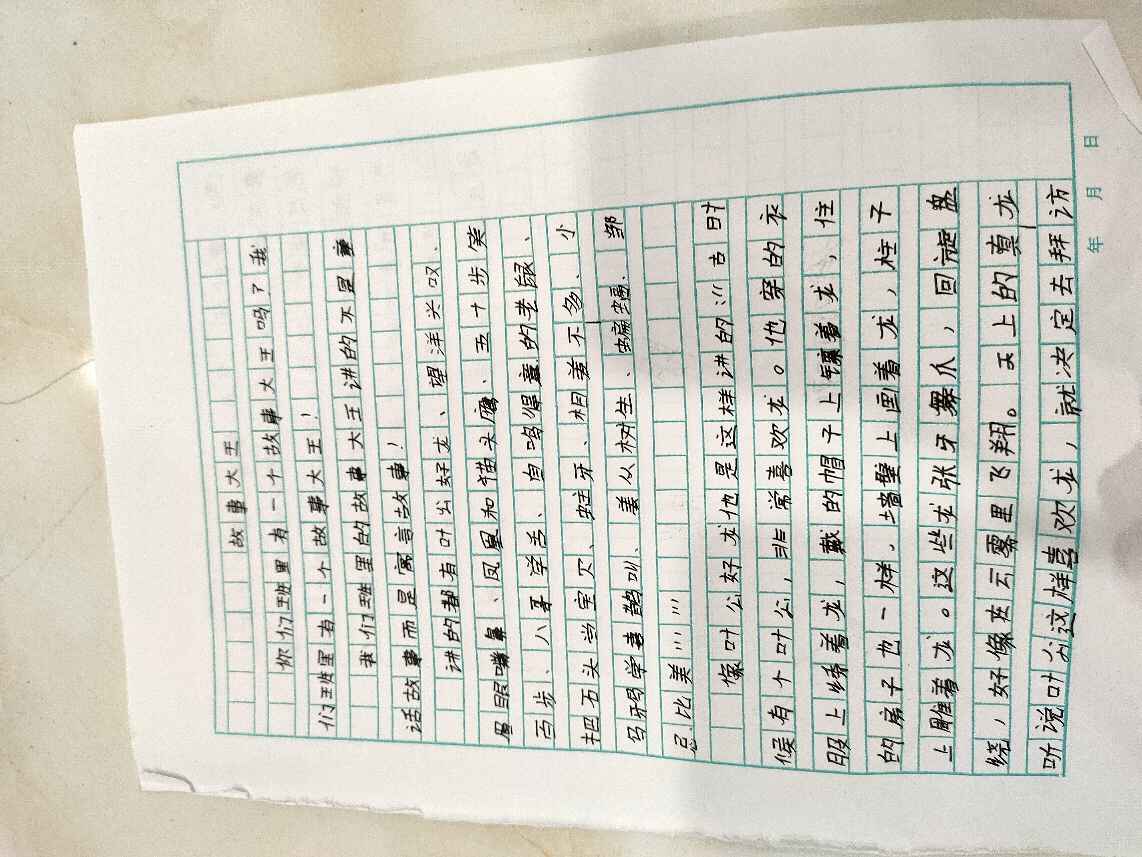 故事大王
你们班里有一个故事大王吗？我
们班里有一个故事大王！
我们班里的故事大王讲的不是童
话故事而是寓言故事！
讲的都有叶公好龙、望洋兴叹、
眉眼嘴鼻、凤凰和猫头鹰、五十步笑
百步、八哥学舌、自鸣得意的老鼠、
把石头当宝贝、蛀牙、相差不多、小
马驹学喜鹊叫、姜从树生、蝙蝠、邹
忌比美……
像叶公好龙他是这样讲的：古时
候有个叶公，非常喜欢龙。他穿的衣
服上绣着龙，戴的帽子上镶着龙，住
的房子也一样，墙壁上画着龙，柱子
上雕着龙。这些龙张牙舞爪，回旋盘
绕，好像在云雾里飞翔。天上的真龙
听说叶公这样喜欢龙，就决定去拜访
年 月 日